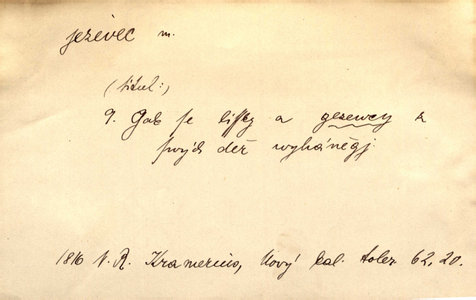 jezevec m.
(titul:)
9. Gak se lissky a gezewcy z
swých děr wyháněgj.
1816 V. R. Kramerius, Nový kal. toler 62, 20.